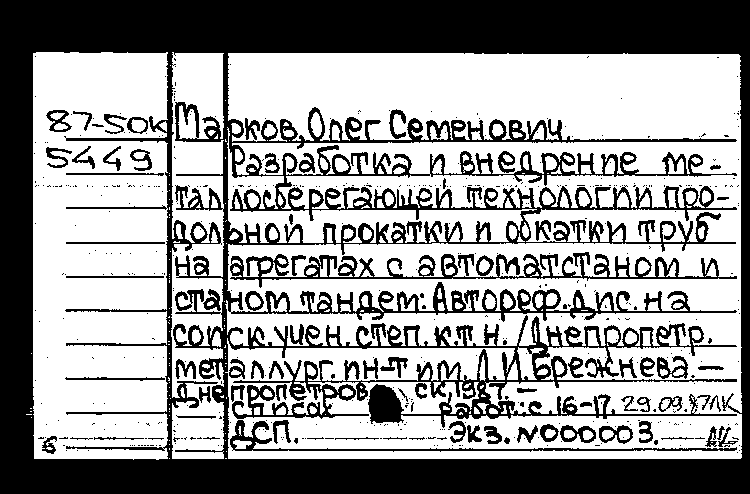 87-50к Марков, Олег Семенович.
5449 Разработка и внедрение ме-
таллосберегающей технологии про-
дольной прокатки и обкатки труб
на агрегатах с автоматстаном и
станом тандем: Автореф. дис. на
соиск. учен. степ. к.т.н. / Днепропетр.
металлург. ин-т им. Л.И. Брежнева. —
Днепропетровск, 1987. —
списах работ: с. 16-17. 29.09.87ЛК
ДСП. Экз. N000003.
Б